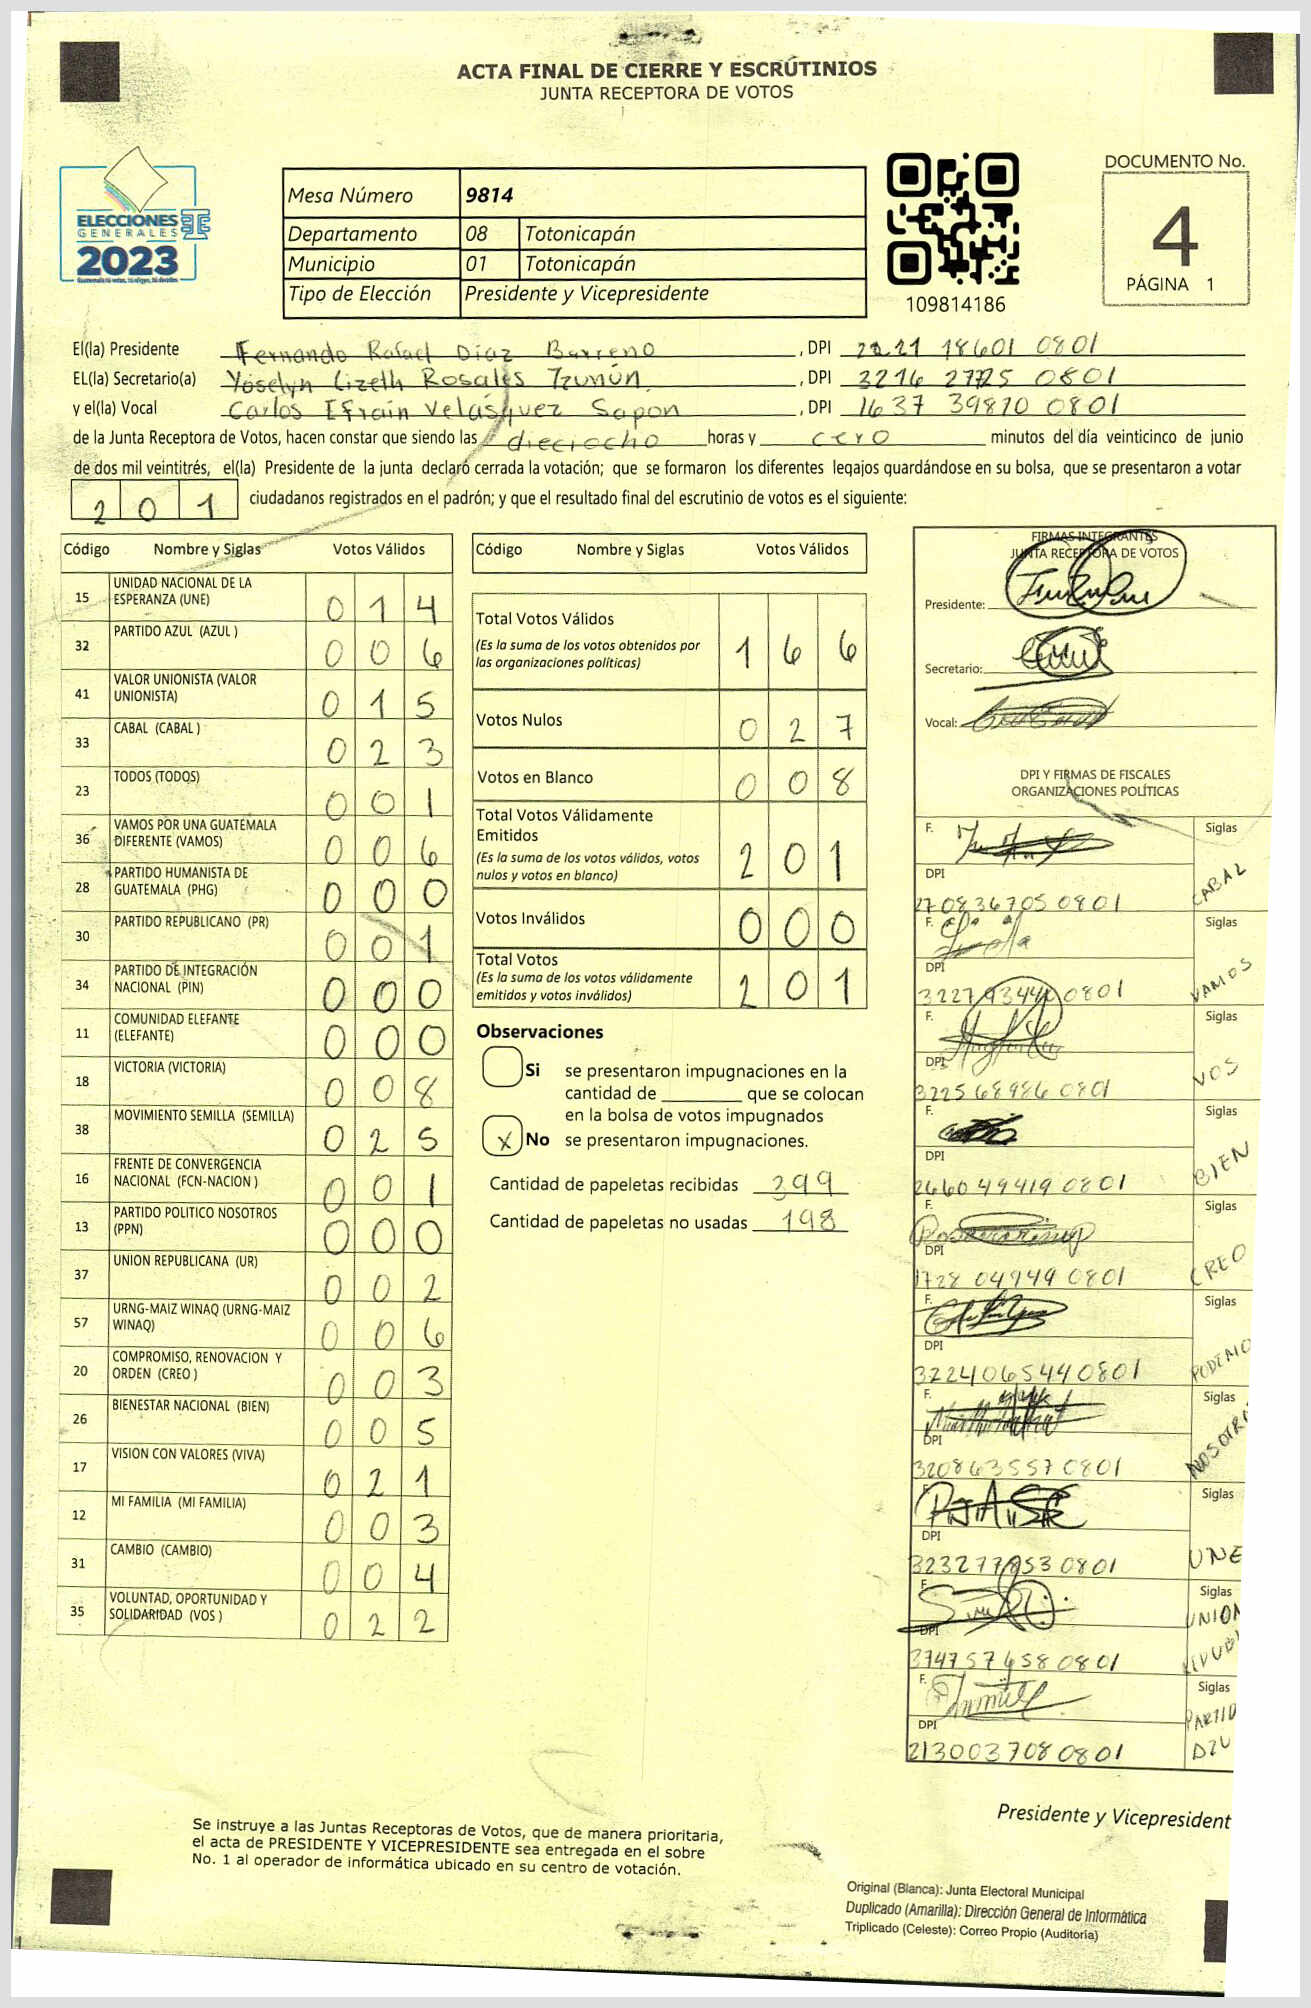 ACTA FINAL DE CIERRE Y ESCRÚTINIOS
JUNTA RECEPTORA DE VOTOS
ELECCIONES
GENERALES
2023
Mesa Número 9814
Departamento 08 Totonicapán
Municipio 01 Totonicapán
Tipo de Elección Presidente y Vicepresidente
109814186
DOCUMENTO No.
4
PÁGINA 1
El(la) Presidente Fernando Rafael Díaz Barreno , DPI 2221 18601 0801
EL(la) Secretario(a) Yoselyn Lizeth Rosales Tzunún , DPI 3216 2725 0801
y el(la) Vocal Carlos Efraín Velásquez Sapon , DPI 1637 39870 0801
de la Junta Receptora de Votos, hacen constar que siendo las dieciocho horas y cero minutos del día veinticinco de junio
de dos mil veintitrés, el(la) Presidente de la junta declaró cerrada la votación; que se formaron los diferentes legajos guardándose en su bolsa, que se presentaron a votar
201 ciudadanos registrados en el padrón; y que el resultado final del escrutinio de votos es el siguiente:
Código Nombre y Siglas Votos Válidos
15 UNIDAD NACIONAL DE LA ESPERANZA (UNE) 014
32 PARTIDO AZUL (AZUL ) 006
41 VALOR UNIONISTA (VALOR UNIONISTA) 015
33 CABAL (CABAL ) 023
23 TODOS (TODOS) 001
36 VAMOS POR UNA GUATEMALA DIFERENTE (VAMOS) 006
28 PARTIDO HUMANISTA DE GUATEMALA (PHG) 000
30 PARTIDO REPUBLICANO (PR) 001
34 PARTIDO DE INTEGRACIÓN NACIONAL (PIN) 000
11 COMUNIDAD ELEFANTE (ELEFANTE) 000
18 VICTORIA (VICTORIA) 008
38 MOVIMIENTO SEMILLA (SEMILLA) 025
16 FRENTE DE CONVERGENCIA NACIONAL (FCN-NACION ) 001
13 PARTIDO POLITICO NOSOTROS (PPN) 000
37 UNION REPUBLICANA (UR) 002
57 URNG-MAIZ WINAQ (URNG-MAIZ WINAQ) 006
20 COMPROMISO, RENOVACION Y ORDEN (CREO ) 003
26 BIENESTAR NACIONAL (BIEN) 005
17 VISION CON VALORES (VIVA) 021
12 MI FAMILIA (MI FAMILIA) 003
31 CAMBIO (CAMBIO) 004
35 VOLUNTAD, OPORTUNIDAD Y SOLIDARIDAD (VOS ) 022
Código Nombre y Siglas Votos Válidos
Total Votos Válidos 166
(Es la suma de los votos obtenidos por
las organizaciones políticas)
Votos Nulos 027
Votos en Blanco 008
Total Votos Válidamente
Emitidos 201
(Es la suma de los votos válidos, votos
nulos y votos en blanco)
Votos Inválidos 000
Total Votos 201
(Es la suma de los votos válidamente
emitidos y votos inválidos)
Observaciones
Si se presentaron impugnaciones en la
cantidad de ________ que se colocan
en la bolsa de votos impugnados
x No se presentaron impugnaciones.
Cantidad de papeletas recibidas 399
Cantidad de papeletas no usadas 198
FIRMAS INTEGRANTES
JUNTA RECEPTORA DE VOTOS
Presidente:
Secretario:
Vocal:
DPI Y FIRMAS DE FISCALES
ORGANIZACIONES POLÍTICAS
F. Siglas
DPI CABAL
270836705 0801
F. Siglas
DPI VAMOS
322793442 0801
F. Siglas
DPI VOS
322568986 0801
F. Siglas
DPI BIEN
266049419 0801
F. Siglas
DPI CREO
1728 04949 0801
F. Siglas
DPI PODEMO
322406544 0801
F. Siglas
DPI NOSOTR
320863557 0801
F. Siglas
DPI UNE
3232778530801
F. Siglas
DPI UNION
374757458 0801
F. Siglas
DPI PARTID
213003708 0801
Presidente y Vicepresident
Se instruye a las Juntas Receptoras de Votos, que de manera prioritaria,
el acta de PRESIDENTE Y VICEPRESIDENTE sea entregada en el sobre
No. 1 al operador de informática ubicado en su centro de votación.
Original (Blanca): Junta Electoral Municipal
Duplicado (Amarilla): Dirección General de Informática
Triplicado (Celeste): Correo Propio (Auditoría)